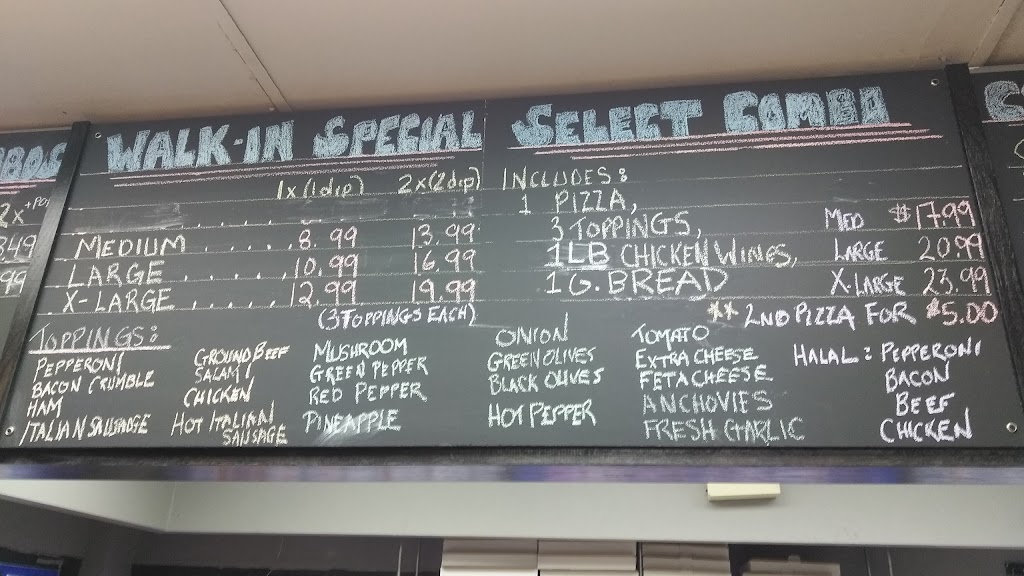 BOS
2x
3.49
99
WALK-IN SPECIAL
1x (1 dip) 2x (2 dip)
MEDIUM ........ 8.99 13.99
LARGE ........ 10.99 16.99
X-LARGE ........ 12.99 19.99
(3 TOPPINGS EACH)
SELECT COMBO
INCLUDES:
1 PIZZA,
3 TOPPINGS,
1LB CHICKEN WINGS,
1 G. BREAD
MED $17.99
LARGE 20.99
X-LARGE 23.99
** 2ND PIZZA FOR $5.00
TOPPINGS:
PEPPERONI
BACON CRUMBLE
HAM
ITALIAN SAUSADGE
GROUND BEEF
SALAMI
CHICKEN
HOT ITALIAN
SAUSAGE
MUSHROOM
GREEN PEPPER
RED PEPPER
PINEAPPLE
ONION
GREEN OLIVES
BLACK OLIVES
HOT PEPPER
TOMATO
EXTRA CHEESE
FETA CHEESE
ANCHOVIES
FRESH GARLIC
HALAL: PEPPERONI
BACON
BEEF
CHICKEN